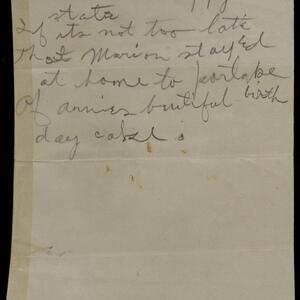 state
If its not too late
that Marion stayed
at home to partake
of annies beutiful birth
day cake